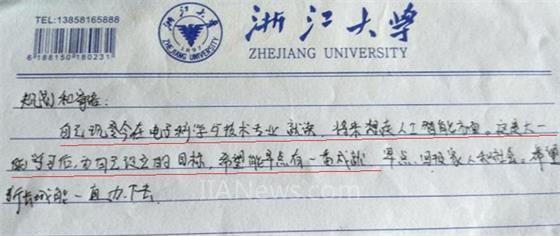 TEL:13858165888
浙江大学
ZHEJIANG UNIVERSITY
1897
6 186150 180231
规划和寄语:
自己现如今在电子科学与技术专业就读,将来想在人工智能方面。这是大一
的学习后,为自己设立的目标,希望能早点有一番成就 早点回报家人和社会。希望
新长城能一直办下去
JIANews.com